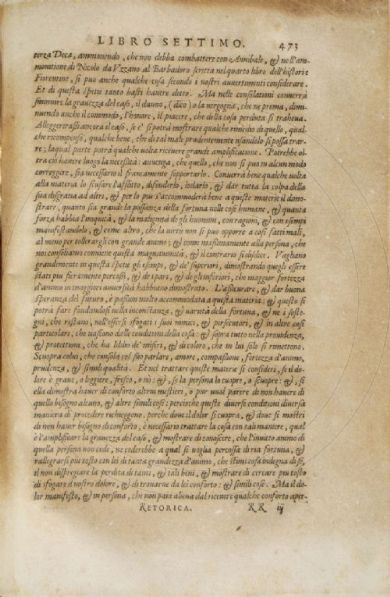 LIBRO SETTIMO. 473
terza Deca, ammonendo, che non debba combattere con Annibale, & nell'am-
monitione di Nicolo da Vzzano al Barbadoro scritta nel quarto libro dell'historie
Fiorentine, si può anche qualche cosa secondo i nostri auuertimenti considerare.
Et di questa specie tanto basti hauere detto. Ma nelle consolationi conuerrà
sminuire la grauezza del caso, il danno, (dico) o la vergogna, che ne prema, dimi-
nuendo anche il commodo, l'honore, il piacere, che della cosa perduta si traheua.
Alleggerirassi ancora il caso, se e' si potrà mostrare qualche rimedio di quello, qual-
che ricompensa, qualche bene, che di tal male prudentemente usandolo si possa trar-
re; laqual parte potrà qualche volta riceuere grande amplificatione. Potrebbe ol-
tra ciò hauere luogo la necessità: auuenga, che quello, che non si può in alcun modo
correggere, sia necessario il francamente sopportarlo. Conuerrà bene qualche volta
alla materia lo scusare l'afflitto, difenderlo, lodarlo, & dar tutta la colpa della
sua disgratia ad altri, & per lo più s'accommoderà bene a queste materie il dimo-
strare, quanto sia grande la possanza della fortuna nelle cose humane, & quanta
forza habbia l'iniquità, & la malignità de gli huomini, con ragioni, & con esempi
manifestandolo, & come altro, che la virtù non si può opporre a casi fatti mali,
al meno per tollerargli con grande animo; & come massimamente alla persona, che
noi consoliamo conuiene questa magnanimità, & il contrario si disdice. Vagliano
grandemente in questa spetie gli esempi, & de' superiori, dimostrando quegli essere
stati più fieramente percossi, & de' pari, & de gl'inferiori, che maggior fortezza
d'animo in maggiori auuersità habbiano dimostrato. L'assicurare, & dar buona
speranza del futuro, è passion molto accommodata a questa materia; & questo si
potrà fare fondandosi nella incostanza, & varietà della fortuna,
prudenza, & simili qualità. Et nel trattare queste materie si consideri, se il do-
lore è graue, o leggiere, fresco, o nò;
ella dimostra hauer di conforto altrui mestiero, o pur vuol parere di non hauere di
quello bisogno alcuno, & altre cose simili: percioche queste diuerse conditioni diuersa
maniera di procedere richieggono, perche doue il dolor si cuopra, & doue si mostri
di non hauer bisogno di conforto, è necessario trattare la cosa con tali maniere, qual
è l'amplificare la grauezza del caso, & mostrare di conoscere, che l'inuitto animo di
quella persona non cede, ne cederebbe a qual si voglia percossa di ria fortuna, &
rallegrarsi più tosto con lei di tanta grandezza d'animo, che stimi cosa indegna di se,
il non dispregare la perdita di tanti, & tali beni, & mostrare di cercare più tosto
di sfogare il nostro dolore, & di trouarne da lei conforto: & simili cose. Ma il do-
lor manifesto, & in persona, che non paia aliena dal riceuere qualche conforto aper-
RETORICA. RR iij